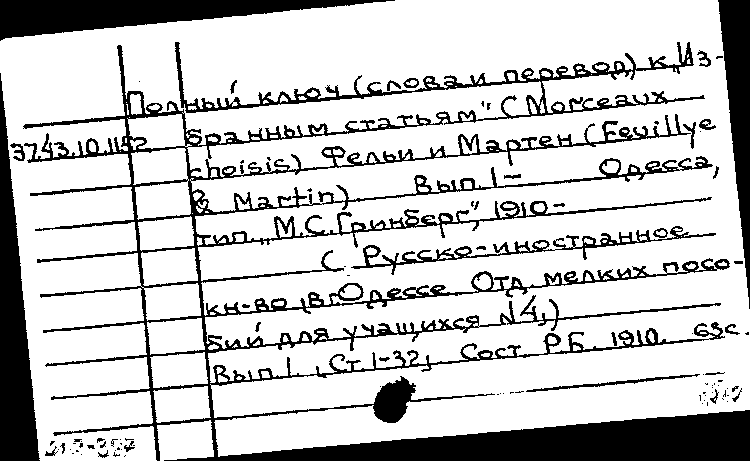 Полный ключ (слова и перевод) к „Из-
37.43.10.1152 бранным статьям" (Morceaux
choisis) Фельи и Мартен (Feuillye
& Martin). Вып. 1- Одесса,
тип. „М.С. Гринберг", 1910-
( Русско-иностранное
кн-во в г. Одессе. Отд. мелких посо-
бий для учащихся №4,)
Вып. 1. (Ст. 1-32), Сост. Р.Б. 1910. 63с.